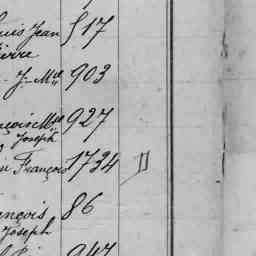 uis Jean 517
ierre
J. Mel 903
nçois Mie 927
Joseph
François 1734 D
ençois 86
Joseph
947